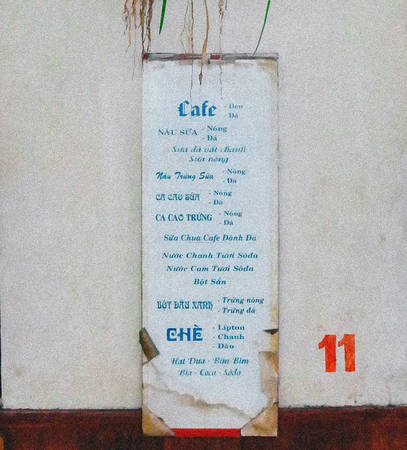 Cafe - Đen
- Đá
NÂU SỮA - Nóng
- Đá
Sữa đá vắt chanh
Sữa nóng
Nâu Trứng Sữa - Nóng
- Đá
CA CAO SỮA - Nóng
- Đá
CA CAO TRỨNG - Nóng
- Đá
Sữa Chua Cafe Đánh Đá
Nước Chanh Tươi Sôđa
Nước Cam Tươi Sôđa
Bột Sắn
BỘT ĐẬU XANH - Trứng nóng
- Trứng đá
CHÈ - Lipton
- Chanh
- Đào
Hạt Dưa - Bim Bim
Bia - Coca - Sôđa
11